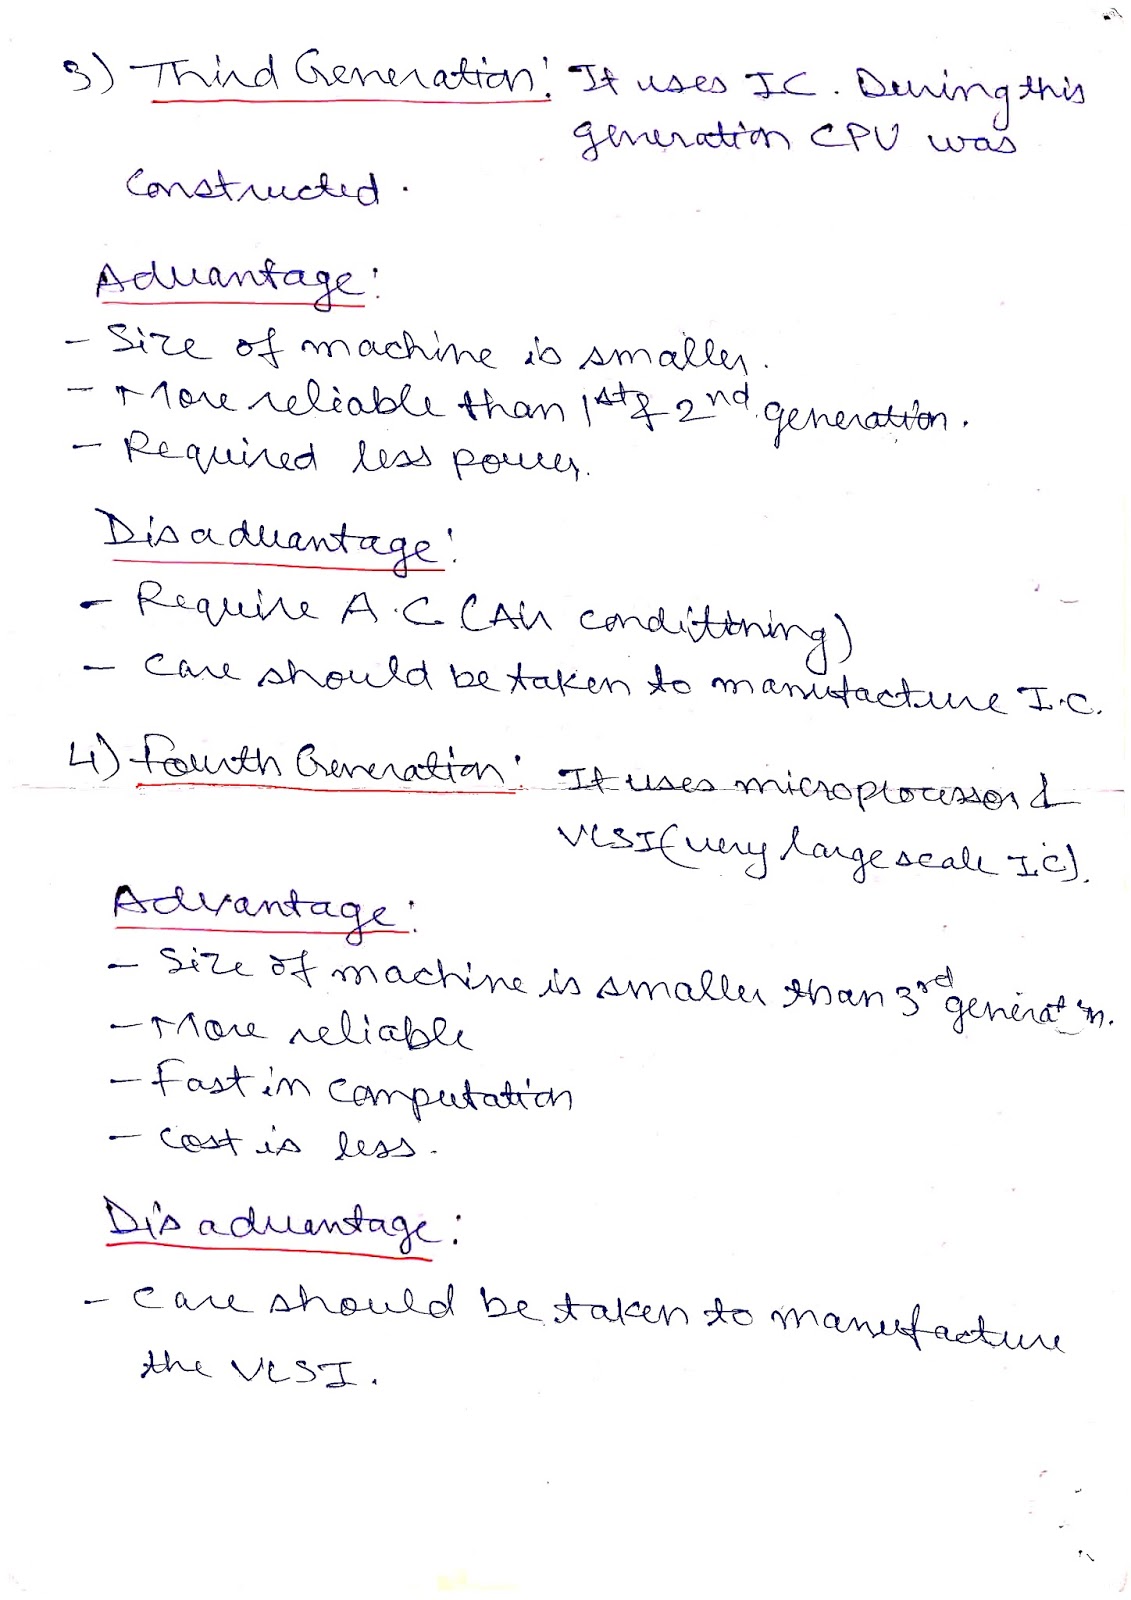 3) Third Generation: It uses I.C. During this
generation CPU was
constructed.
Advantage:
- Size of machine is smaller.
- More reliable than 1st & 2nd generation.
- Required less power.
Disadvantage:
- Require A.C (Air condittning)
- Care should be taken to manufacture I.C.
4) Fourth Generation: It uses microprocessor &
VLSI (very large scale I.C).
Advantage:
- Size of machine is smaller than 3rd generation.
- More reliable
- Fast in computation
- Cost is less.
Disadvantage:
- Care should be taken to manufacture
the VLSI.